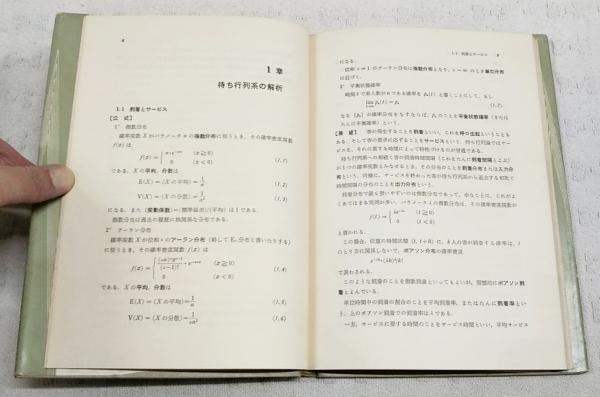 1 章
待ち行列系の解析
1.1 到着とサービス
【公 式】
1° 指数分布
確率変数 X がパラメータ α の指数分布に従うとき，その確率密度関数
f(x) は
f(x)= α・e^{-αx} (x≧0)
0 (x<0) (1.1)
である．X の平均，分散は
E(X)=(X の平均)=1/α (1.2)
V(X)=(X の分散)=1/α² (1.3)
になる．また (変動係数)=(標準偏差)/(平均) は 1 である．
指数分布は過去の履歴に無関係な分布である．
2° アーラン分布
確率変数 X が位相 s のアーラン分布 (略して Eₛ 分布と書いたりする)
に従うとき，その確率密度関数 f(x) は
(x≧0)
0 (x<0) (1.4)
である．X の平均，分散は
E(X)=(X の平均)=1/α (1.5)
V(X)=(X の分散)=1/sα² (1.6)
1.1 到着とサービス 3
になる．
位相 s=1 のアーラン分布は指数分布となり，s→∞ のとき単位分布
に近づく．
3° 平衡状態確率
時刻 t で系人数が n である確率を pₙ(t) と書くことにして，もし
lim pₙ(t)=pₙ (1.7)
t→∞
なる {pₙ} が確率分布をなすならば，pₙ のことを平衡状態確率 (または
たんに平衡確率) という．
【展 望】 客が発生することを到着といい，これを呼の生起ということも
ある．そして客の要求に応ずることをサービスという．待ち行列論ではサー
ビスを，それに要する時間によって特性づけるのが普通である．
待ち行列系への相続く客の到着時間間隔 (これをたんに到着間隔とよぶ)
が1つの確率変数とみなせるとき，その分布のことを到着分布または入力分
布という．同様に，サービスを終わった客が待ち行列系から退去する相次ぐ
時間間隔の分布のことを出力分布という．
到着分布で最も扱いやすいのは指数分布であって，幸なことに，これがよ
くあてはまる場合が多い．パラメータ λ の指数分布は，その確率密度関数が
f(t)= λe^{-λt} (t≧0)
0 (t<0)
と書かれる．
この場合，任意の時間区間 (t, t+h) に，k 人の客が到着する確率は，t
のとり方に関係しないで，ポアソン分布の確率密度
e^{-λh}・(λh)^k/k!
で表わされる．
このような到着のことを指数到着といってもよいが，習慣的にポアソン到
着とよんでいる．
単位時間中の到着の割合のことを平均到着率，またはたんに到着率とい
う．上のポアソン到着での到着率は λ である．
一方，サービスに要する時間のことをサービス時間といい，平均サービス